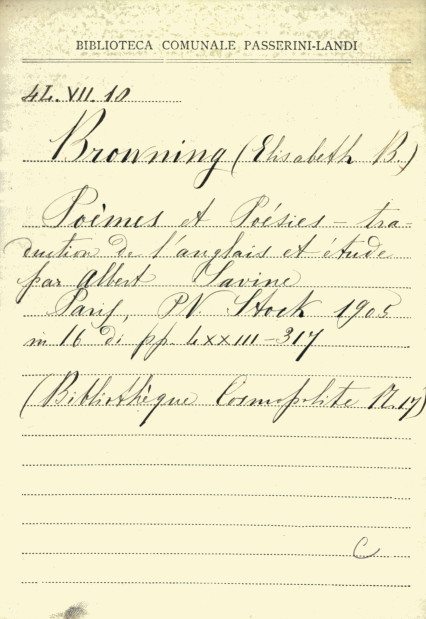 BIBLIOTECA COMUNALE PASSERINI-LANDI
4L. VII. 10
Browning (Elisabeth B.)
Poèmes et Poésies - tra-
duction de l'anglais et étude
par Albert Savine
Paris, P.V. Stock 1905
in 16 di pp. LXXIII-317
(Bibliothèque Cosmopolite N. 17)
C